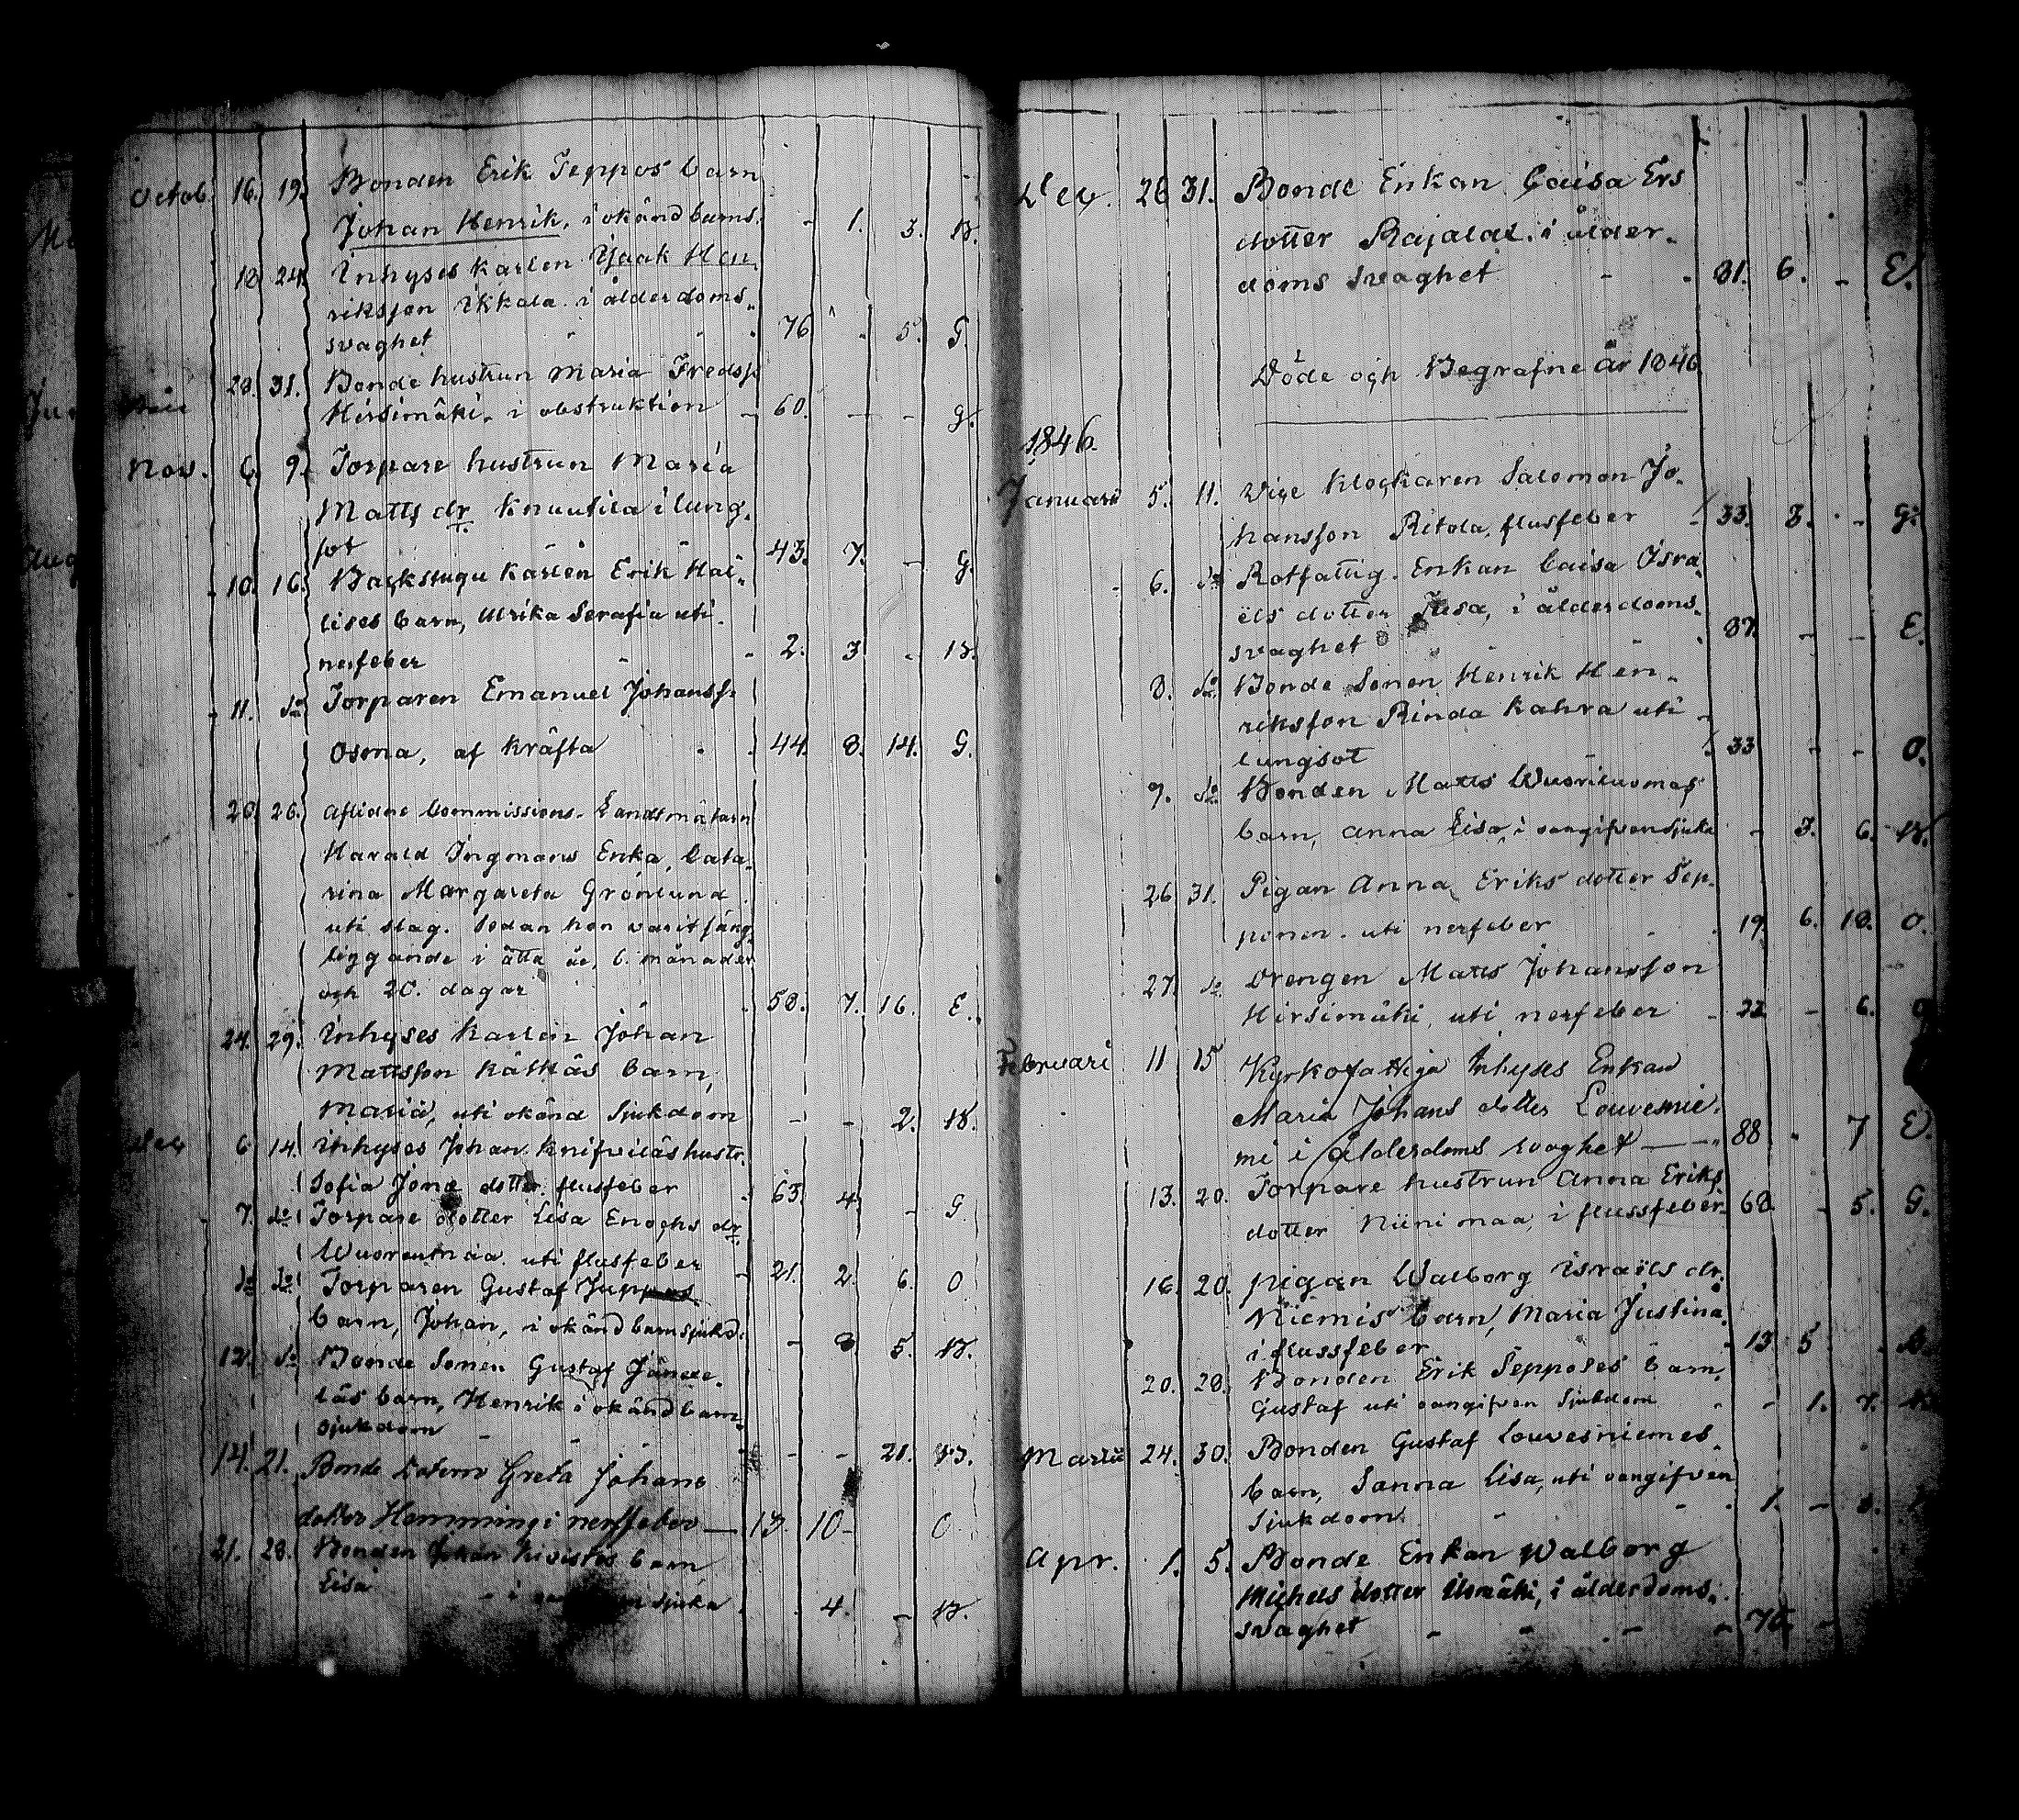 Octob. 16. 19. Bonden Erik Seppos barn
Johan Henrik, i okänd barns. - 1. 3. B.
18 24. Inhyses karlen Isaak Hen
riksson Ikkala i ålderdoms
svaghet 76 - 5. G.
28. 31. Bonde hustrun Maria Fredsf.
Hirsimäki. i obstruktion - 60. - - G.
Nov. 6. 9. Torpare hustrun Maria
Matts dr. Knuutila i lung.
sot - 43. 7. - G.
10. 16. Backstugu karlen Erik Hai-
lises barn, Ulrika Serafia uti.
nerfeber - - 2. 3 - B.
11. do Torparen Emanuel Johanss.
Osma, af kräfta - - 44. 8. 14. G.
20. 26. Aflidne Commissions. Landtmätarn
Harald Ingmans Enka, Cata-
rina Margareta Grönlund
uti slag. Sedan hon varit säng
liggande i åtta år, 6. månader
och 20. dagar - 58. 7. 16. E.
24. 29. Inhyses karlen Johan
Mattsson Kälkäs barn,
Maria, uti okänd sjukdom - - 2. B.
Dec 6 14. Inhyses Johan Knifviläs hustr.
Sofia Jonæ dotter. flusfeber 63. 4. - G.
7. do Torpare dotter Lisa Enochs dr.
Wuorenmaa uti flusfeber - 21. 2. 6. O
do do Torparen Gustaf
barn, Johan, i okänd barnsjukd. - 8. 5. B.
12. do Bonde Sonen Gustaf
läs barn, Henrik i okänd barn
sjukdom - - - - - 21. B.
14. 21. Bonde Dotern Greta Johans
dotter Hemming i nerffeber — 13. 10 - O
21. 28. Bonden Johan Kivistös barn
Lisa - i sjuka - 4. - B.
Dec. 26 31. Bonde Enkan Caisa Ers
dotter Rajalax. i ålder-
doms svaghet - - 81. 6. - E.
Döde och Begrafne år 1846
1846.
Januari 5. 11. Vice Klockaren Salomon Jo-
hansson Ritola, flusfeber - 33. 3. - G.
- 6. do Rotfattig. Enkan Caisa Isra-
els dotter, i ålderdoms.
svaghet - - 87. - - E.
8. do Bonde Sonen Henrik Hen-
riksson Rinda Kahra uti -
lungsot - 33 - - O.
9. do Bonden Matts Wuoriluomas
barn, Anna Lisa, i oangifven sjuka - 3. 6. B.
26 31. Pigan Anna Eriks dotter Sep-
pinen. uti nerfeber - 19 6. 18. O.
27. do Drengen Matts Johansson
Hirsimäki, uti nerfeber - 22 - 6. O
Februari 11 15 Kyrkofattiga Inhyses Enkan
Maria Johans dotter Louvesnie-
mi i ålderdoms svaghet — 88 - 7 E.
13. 20. Torpare hustrun Anna Eriks
dotter Niinimaa, i flussfeber 68. - 5. G.
16. 20. Pigan Walborg Israels dr.
Niemis barn, Maria Justina.
i flussfeber - 13 5 - B.
20. 28. Bonden Erik Sepposes barn.
Gustaf uti oangifven Sjukdom - - 1. 7.
Martii 24. 30. Bonden Gustaf Louvesniemes.
barn, Sanna Lisa, uti oangifven
Sjukdom - - - 1. -
Apr. 1. 5. Bonde Enkan Walborg
Michels dotter Ilomäki, i ålderdoms.
svaghet - - - - 76 -